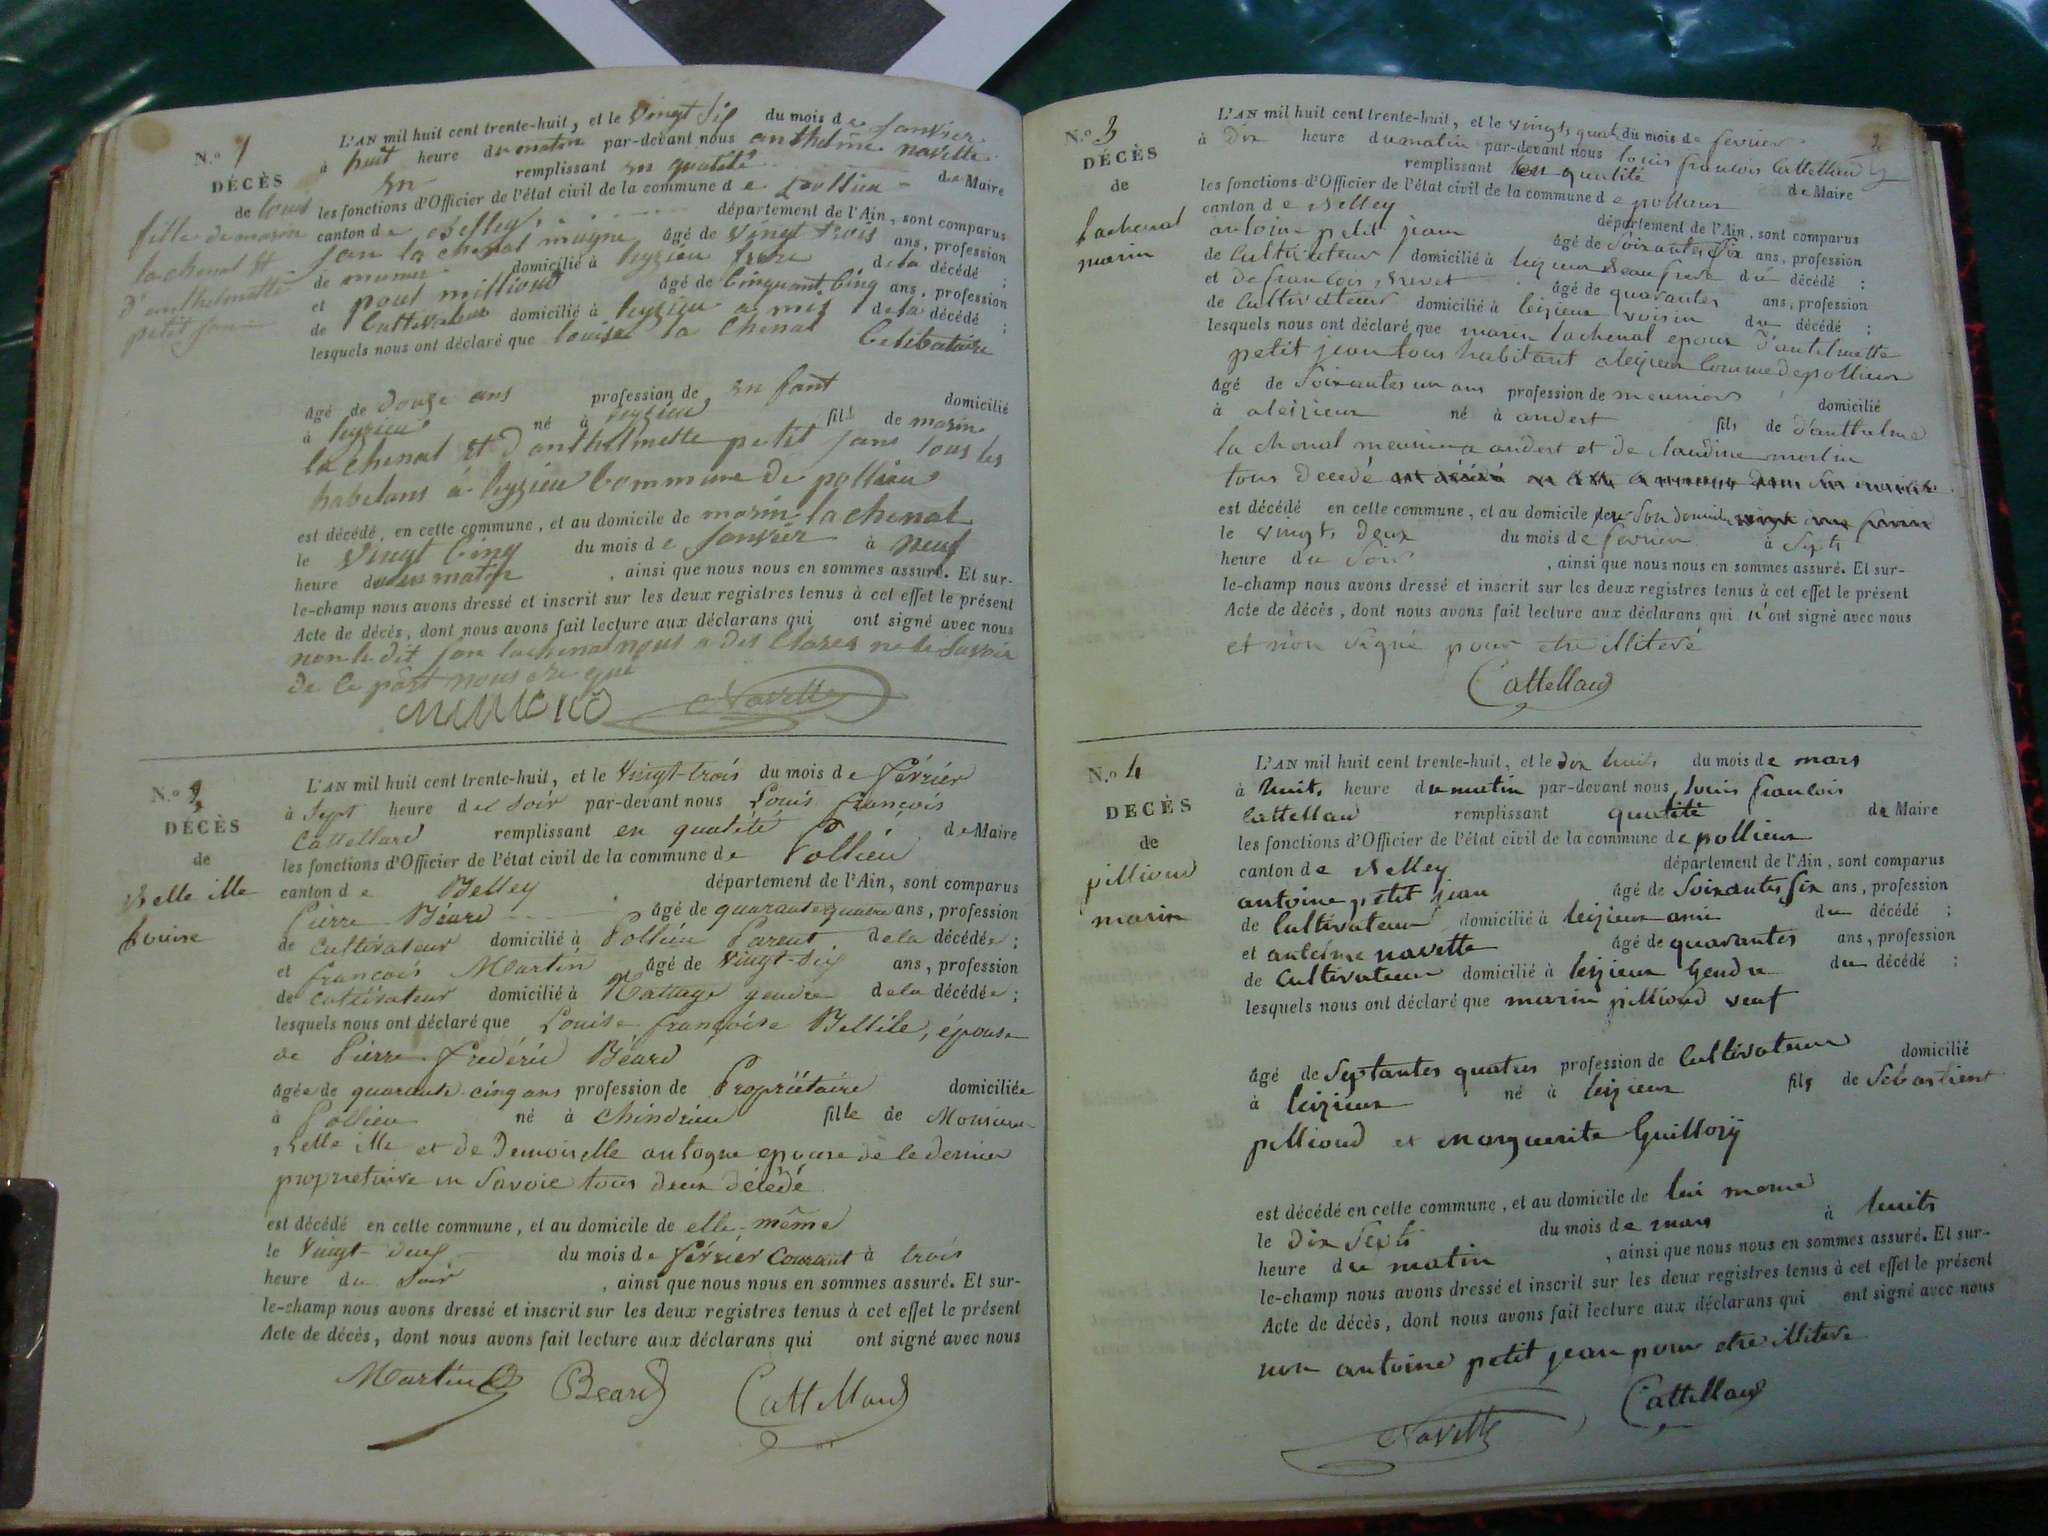 N.º 1
DÉCÈS
de louis
fille de marin
lachenal et
d'anthelmette
petit jean
L'AN mil huit cent trente-huit, et le vingt six du mois de janvier
à huit heure du matin par-devant nous anthelme navette
en remplissant en qualité de Maire
les fonctions d'Officier de l'état civil de la commune de pollieu
canton de Belley département de l'Ain, sont comparus
jan la chenal âgé de vingt trois ans, profession
de domicilié à leyzieu frere de la décédé ;
et pillioud âgé de cinquant cinq ans, profession
de cultivateur domicilié à leyzieu de la décédé ;
lesquels nous ont déclaré que louise la chenal Celibataire
âgé de douze ans profession de en fant domicilié
à leyzieu né à leyzieu fils de marin
lachenal et d'anthelmette petit jans tous les
habitans à leyzieu Commune de pollieu
est décédé, en cette commune, et au domicile de marin lachenal
le vingt cinq du mois de janvier à neuf
heure du matin, ainsi que nous nous en sommes assuré. Et sur-
le-champ nous avons dressé et inscrit sur les deux registres tenus à cet effet le présent
Acte de décès, dont nous avons fait lecture aux déclarans qui ont signé avec nous
non le dit jan lachenal nous a des clarer ne le savoir
de ce
Navette
N.º 2
DÉCÈS
de
Belle ille
Louise
L'AN mil huit cent trente-huit, et le Vingt-trois du mois de février
à sept heure du soir par-devant nous Louis françois
Cattelland remplissant en qualité de Maire
les fonctions d'Officier de l'état civil de la commune de Pollieu
canton de Belley département de l'Ain, sont comparus
Pierre Béard âgé de quarante quatre ans, profession
de Cultivateur domicilié à Pollieu Parent de la décédée ;
et françois Martin âgé de Vingt-dix ans, profession
de cultivateur domicilié à Nattage gendre de la décédée ;
lesquels nous ont déclaré que Louise françoise Bellile, épouse
de Pierre frédéric Béard
âgée de quarante cinq ans profession de Propriétaire domiciliée
à Pollieu né à Chindrieu fille de Monsieur
Belle ille et de Demoiselle autogne epouse de le dernier
proprietaire en Savoie tous deux décédé
est décédé en cette commune, et au domicile de elle-même
le Vingt-deux du mois de février courant à trois
heure du soir, ainsi que nous nous en sommes assuré. Et sur-
le-champ nous avons dressé et inscrit sur les deux registres tenus à cet effet le présent
Acte de décès, dont nous avons fait lecture aux déclarans qui ont signé avec nous
Martin Beard Cattelland
2
N.º 3
DÉCÈS
de
Lachenal
marin
L'AN mil huit cent trente-huit, et le vingts quatr du mois de fevrier
à Dix heure du matin par-devant nous louis francois Cattelland
remplissant en qualité de Maire
les fonctions d'Officier de l'état civil de la commune de pollieux
canton de Belley département de l'Ain, sont comparus
antoine petit jean âgé de Soixantes Six ans, profession
de Cultivateur domicilié à leizieux Beau frere du décédé ;
et de francois âgé de quarantes ans, profession
de Cultivateur domicilié à leizieux voisin du décédé ;
lesquels nous ont déclaré que marin lachenal epoux d'antelmette
petit jean tous habitant a leizieux Comme de pollieux
âgé de Soixantes un ans profession de meunier domicilié
à aleizieux né à andert fils de d'anthelme
la chenal meunier a andert et de claudine morlin
tous decedé
est décédé en cette commune, et au domicile son domicile
le vingts deux du mois de fevrier à Septs
heure du Soir, ainsi que nous nous en sommes assuré. Et sur-
le-champ nous avons dressé et inscrit sur les deux registres tenus à cet effet le présent
Acte de décès, dont nous avons fait lecture aux déclarans qui n'ont signé avec nous
et non signé pour etre illiteré
Cattelland
N.º 4
DÉCÈS
de
pillioud
marin
L'AN mil huit cent trente-huit, et le dix huits du mois de mars
à huits heure du matin par-devant nous louis francois
Cattelland remplissant qualité de Maire
les fonctions d'Officier de l'état civil de la commune de pollieux
canton de Belley département de l'Ain, sont comparus
antoine petit jean âgé de Soixantes Six ans, profession
de Cultivateur domicilié à leizieux ami du décédé ;
et antelme navette âgé de quarantes ans, profession
de Cultivateur domicilié à leizieux Gendre du décédé ;
lesquels nous ont déclaré que marin pillioud veuf
âgé de Septantes quatres profession de Cultivateur domicilié
à leizieux né à leizieux fils de Sébastient
pillioud et marguerite Guilloz
est décédé en cette commune, et au domicile de lui meme
le dix Septs du mois de mars à huits
heure du matin, ainsi que nous nous en sommes assuré. Et sur-
le-champ nous avons dressé et inscrit sur les deux registres tenus à cet effet le présent
Acte de décès, dont nous avons fait lecture aux déclarans qui ont signé avec nous
non antoine petit jean pour etre illiteré
Navette Cattelland